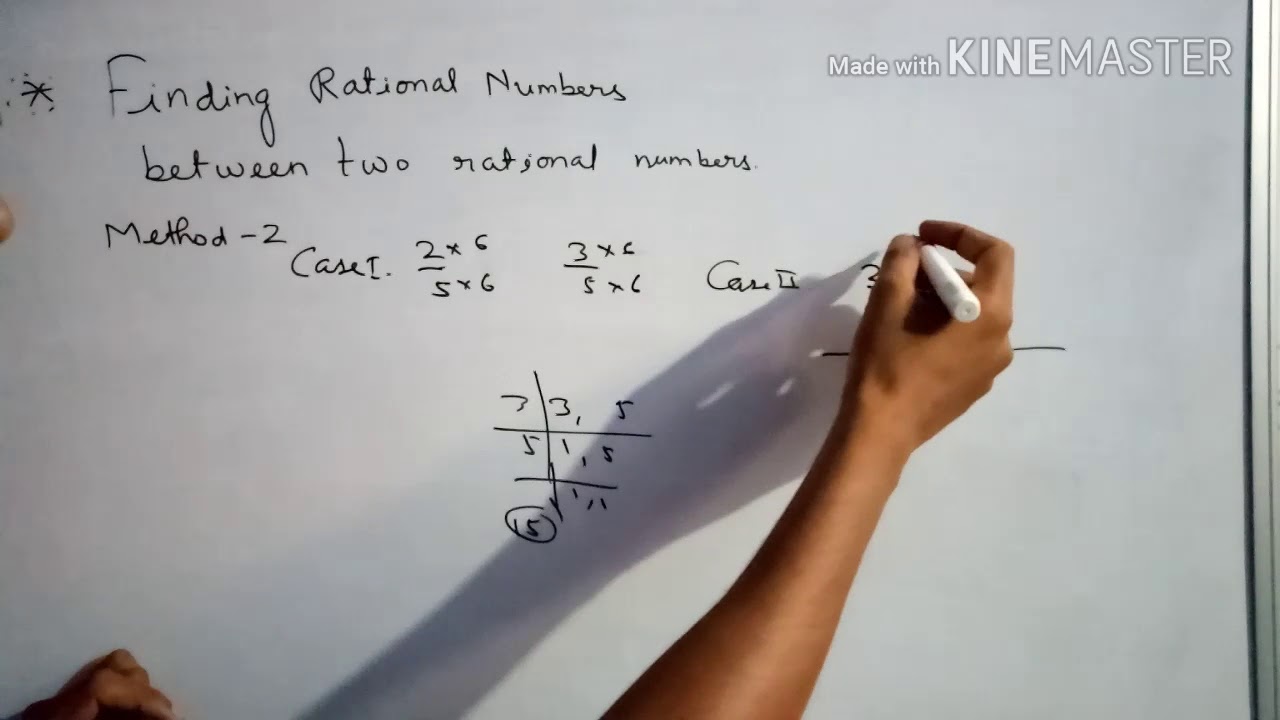 Made with KINEMASTER
* Finding Rational Numbers
between two rational numbers.
Method - 2
Case I. 2 × 6 3 × 6 Case II 3
5 × 6 5 × 6
3 3, 5
5 1, 5
1, 1
15